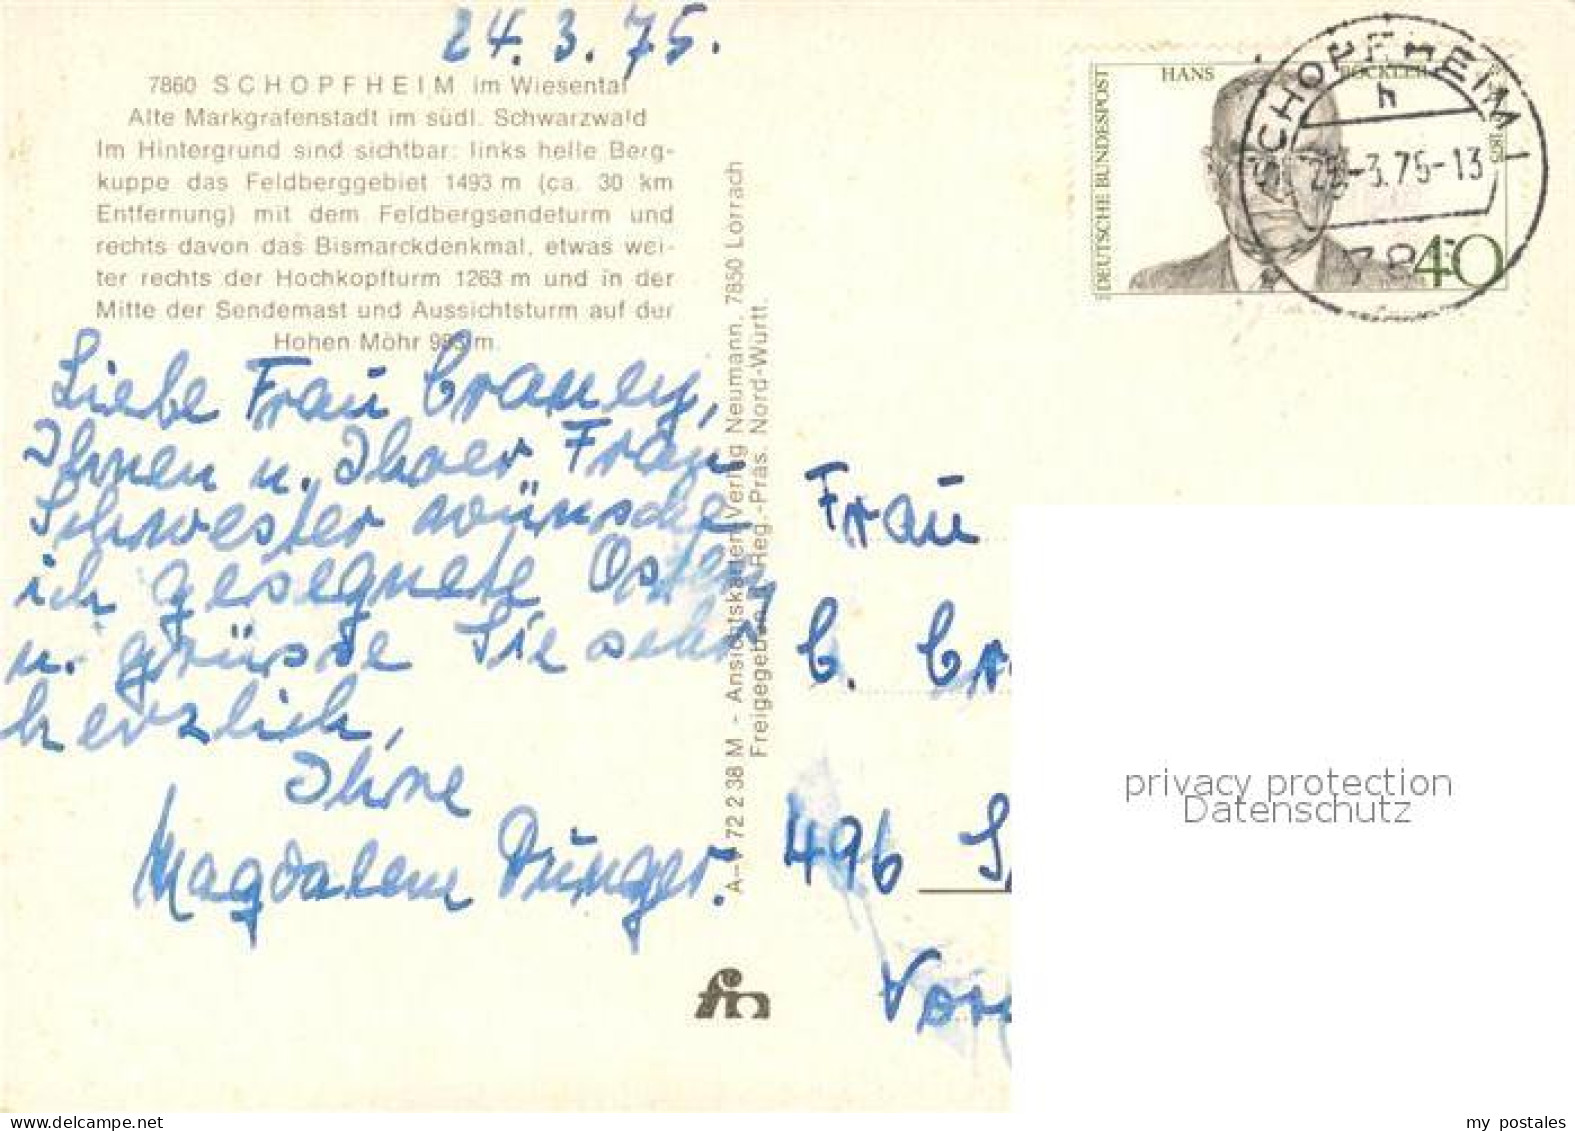 24. 3. 75.
7860 SCHOPFHEIM im Wiesental
Alte Markgrafenstadt im südl. Schwarzwald
Im Hintergrund sind sichtbar: links helle Berg-
kuppe das Feldberggebiet 1493 m (ca. 30 km
Entfernung) mit dem Feldbergsendeturm und
rechts davon das Bismarckdenkmal, etwas wei-
ter rechts der Hochkopfturm 1263 m und in der
Mitte der Sendemast und Aussichtsturm auf der
Hohen Möhr 983 m.
Liebe Frau Cranley,
Ihnen u. Ihrer Frau
Schwester wünsche
ich gesegnete Ostern
u. grüsse Sie sehr
herzlich,
Ihre
Magdalene Dünger.
A-V 72 2 38 M - Ansichtskarten Verlag Neumann, 7850 Lörrach
Freigegeben d. Reg.-Präs. Nord-Württ.
fm
DEUTSCHE BUNDESPOST
HANS BÖCKLER
1875
40
SCHOPFHEIM 1
h
-3.75-13
Frau
C. Cra
496 S
Vor
privacy protection
Datenschutz
my postales
www.delcampe.net